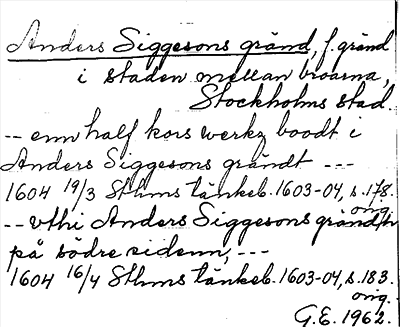 Anders Siggesons gränd, f. gränd
i staden mellan broarna,
Stockholms stad.
-- enn half kors werkz boodt i
Anders Siggesons grändt ---
1604 19/3 Sthms tänkeb. 1603-04, s. 178.
orig.
-- vthi Anders Siggesons gränd,
på södre sidenn, ---
1604 16/4 Sthms tänkeb. 1603-04, s. 183.
orig.
G.E. 1962.